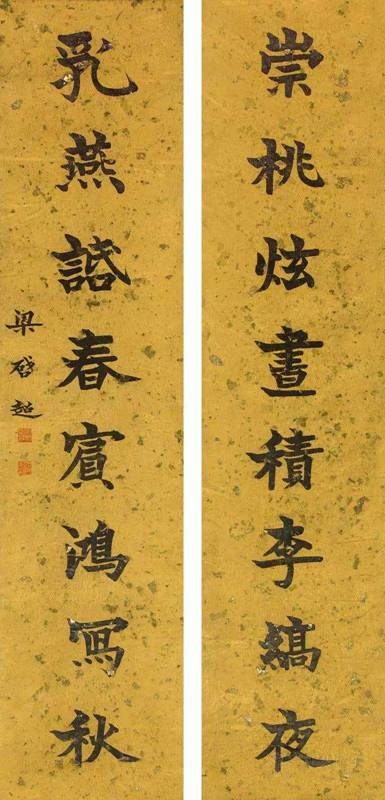 崇桃炫晝積李縞夜
乳燕譜春賓鴻寫秋
梁啓超